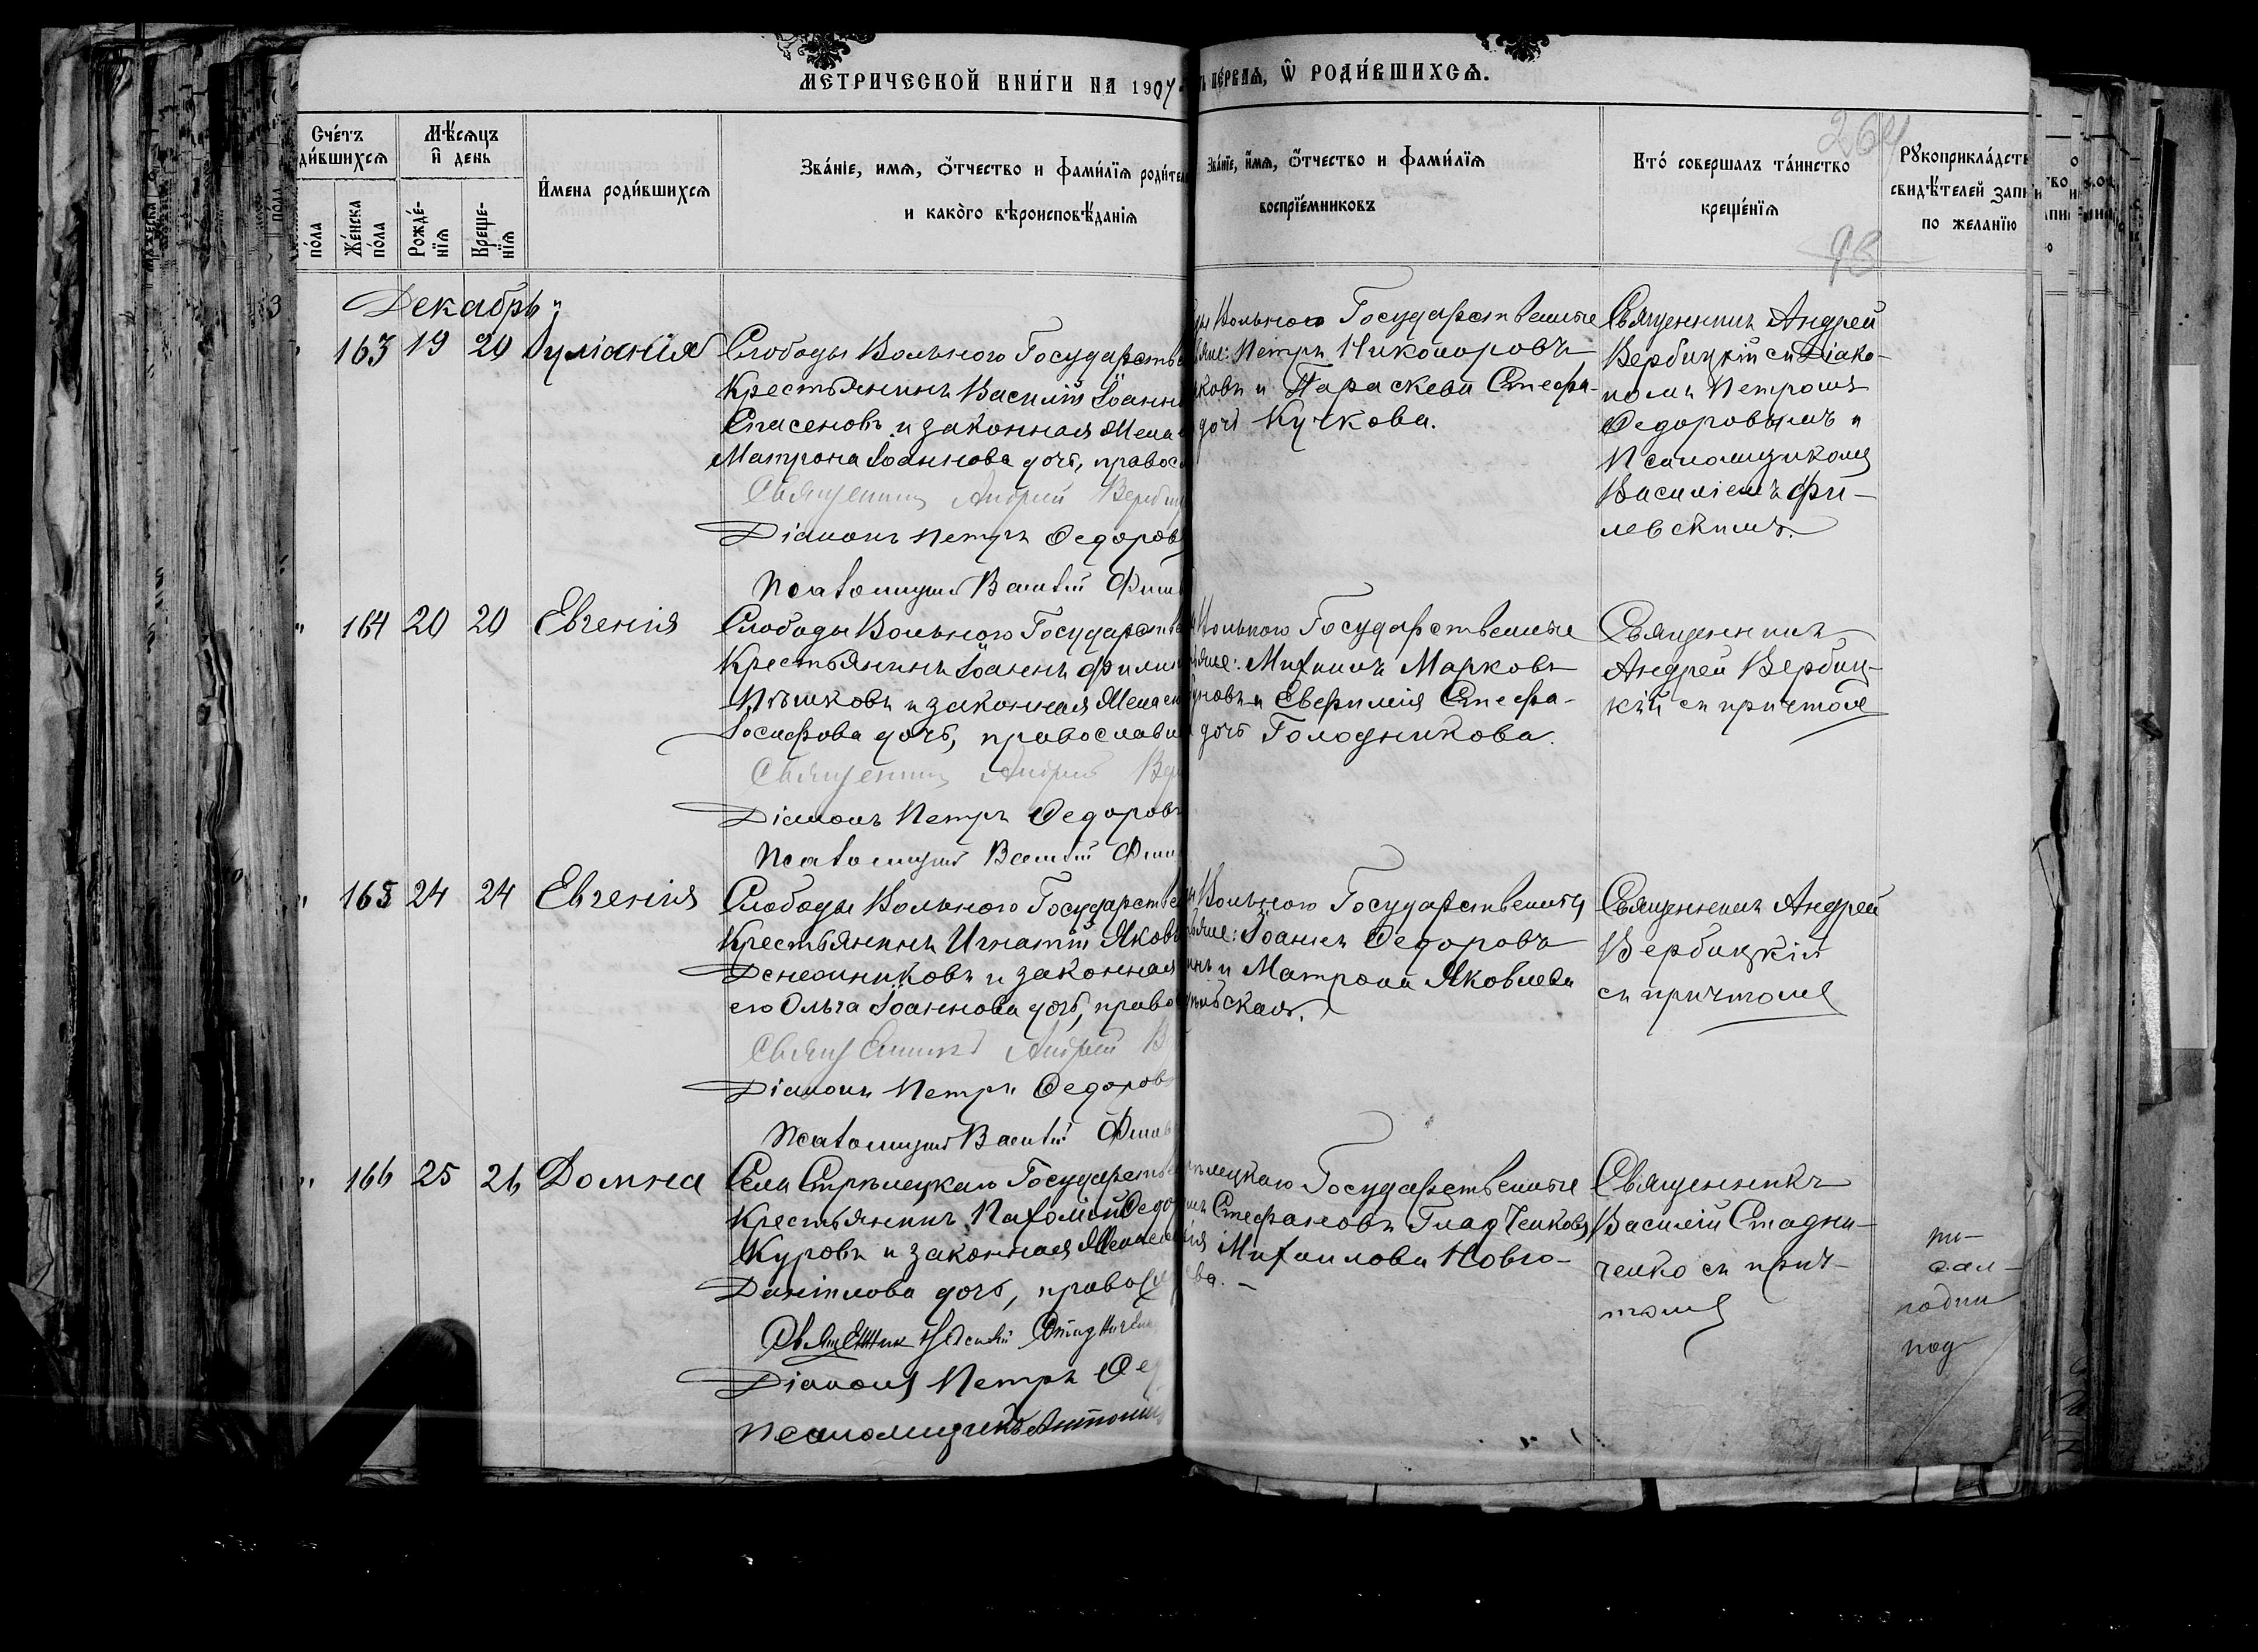 МЕТРИЧЕСКОЙ КНИ́ГИ НА 1907
ПЕ́РВАЯ, Ѿ РОДИ́ВШИХСЯ.
Сче́тъ
ди́вшихся
Мѣ́сяцъ
и҆ день
по́ла
Же́нска
по́ла
Рожде́-
нїя
Креще-
нїя
И҆мена роди́вшихся
Зва́нїе, имя, ѻ҆́тчество и фами́лїя роди́тел
и како́го вѣроисповѣ́данїя
Зва́нїе, и҆́мя, ѻ҆́тчество и фами́лїя
воспрїе́мниковъ
Кто́ совершалъ та́инство
креще́нїя
Рꙋкоприкла́дств
свидѣ́телей запи
по желанїю
264
93
Декабрь
163 19 20 Іуліанія
Слободы Вольного Государстве
Крестьянинъ Василій Іоанн
Стасеновъ и законная Жена
Матрона Іоаннова дочь, правос
Священникъ Андрей Вербиц
Діаконъ Петръ Ѳедоров
Псаломщикъ Василій Фил
Вольного Государственные
Петръ Никоноровъ
ковъ и Параскева Стефа-
дочь Кучкова.
Священникъ Андрей
Вербицкій съ Діако-
номъ Петромъ
Ѳедоровымъ и
Псаломщикомъ
Василіемъ Фи-
левскимъ.
" 164 20 20 Евгенія
Слободы Вольного Государстве
Крестьянинъ Іоаннъ Филип
Пѣшковъ и законная Жена ег
Іосифова дочь, православн
Священникъ Андрей Вер
Діаконъ Петръ Ѳедоровъ
Псаломщикъ Василій Фил
Вольного Государственные
Михаилъ Марковъ
новъ и Евфимія Стефа-
дочь Голодникова.
Священникъ
Андрей Вербиц-
кій съ причтомъ
" 165 24 24 Евгенія
Слободы Вольного Государстве
Крестьянинъ Игнатій Яков
и законная
его Ольга Іоаннова дочь, право
Священникъ Андрей В
Діаконъ Петръ Ѳедоров
Псаломщикъ Василій Фил
Вольного Государственные
Іоаннъ Ѳедоровъ
и Матрона Яковлева
Священникъ Андрей
Вербицкій
съ причтомъ
" 166 25 26 Домна
Села Стрѣлецкаго Государств
Крестьянинъ Пахомій Ѳедо
Куровъ и законная Жена
Даніилова дочь, правос
Священник Василій Стадничен
Діаконъ Петръ Ѳе
Псаломщикъ Антоній
лецкаго Государственные
Стефановъ Гладченковъ
Михаилова Новго-
ва.
Священникъ
Василій Стадни-
ченко съ прич-
томъ
под